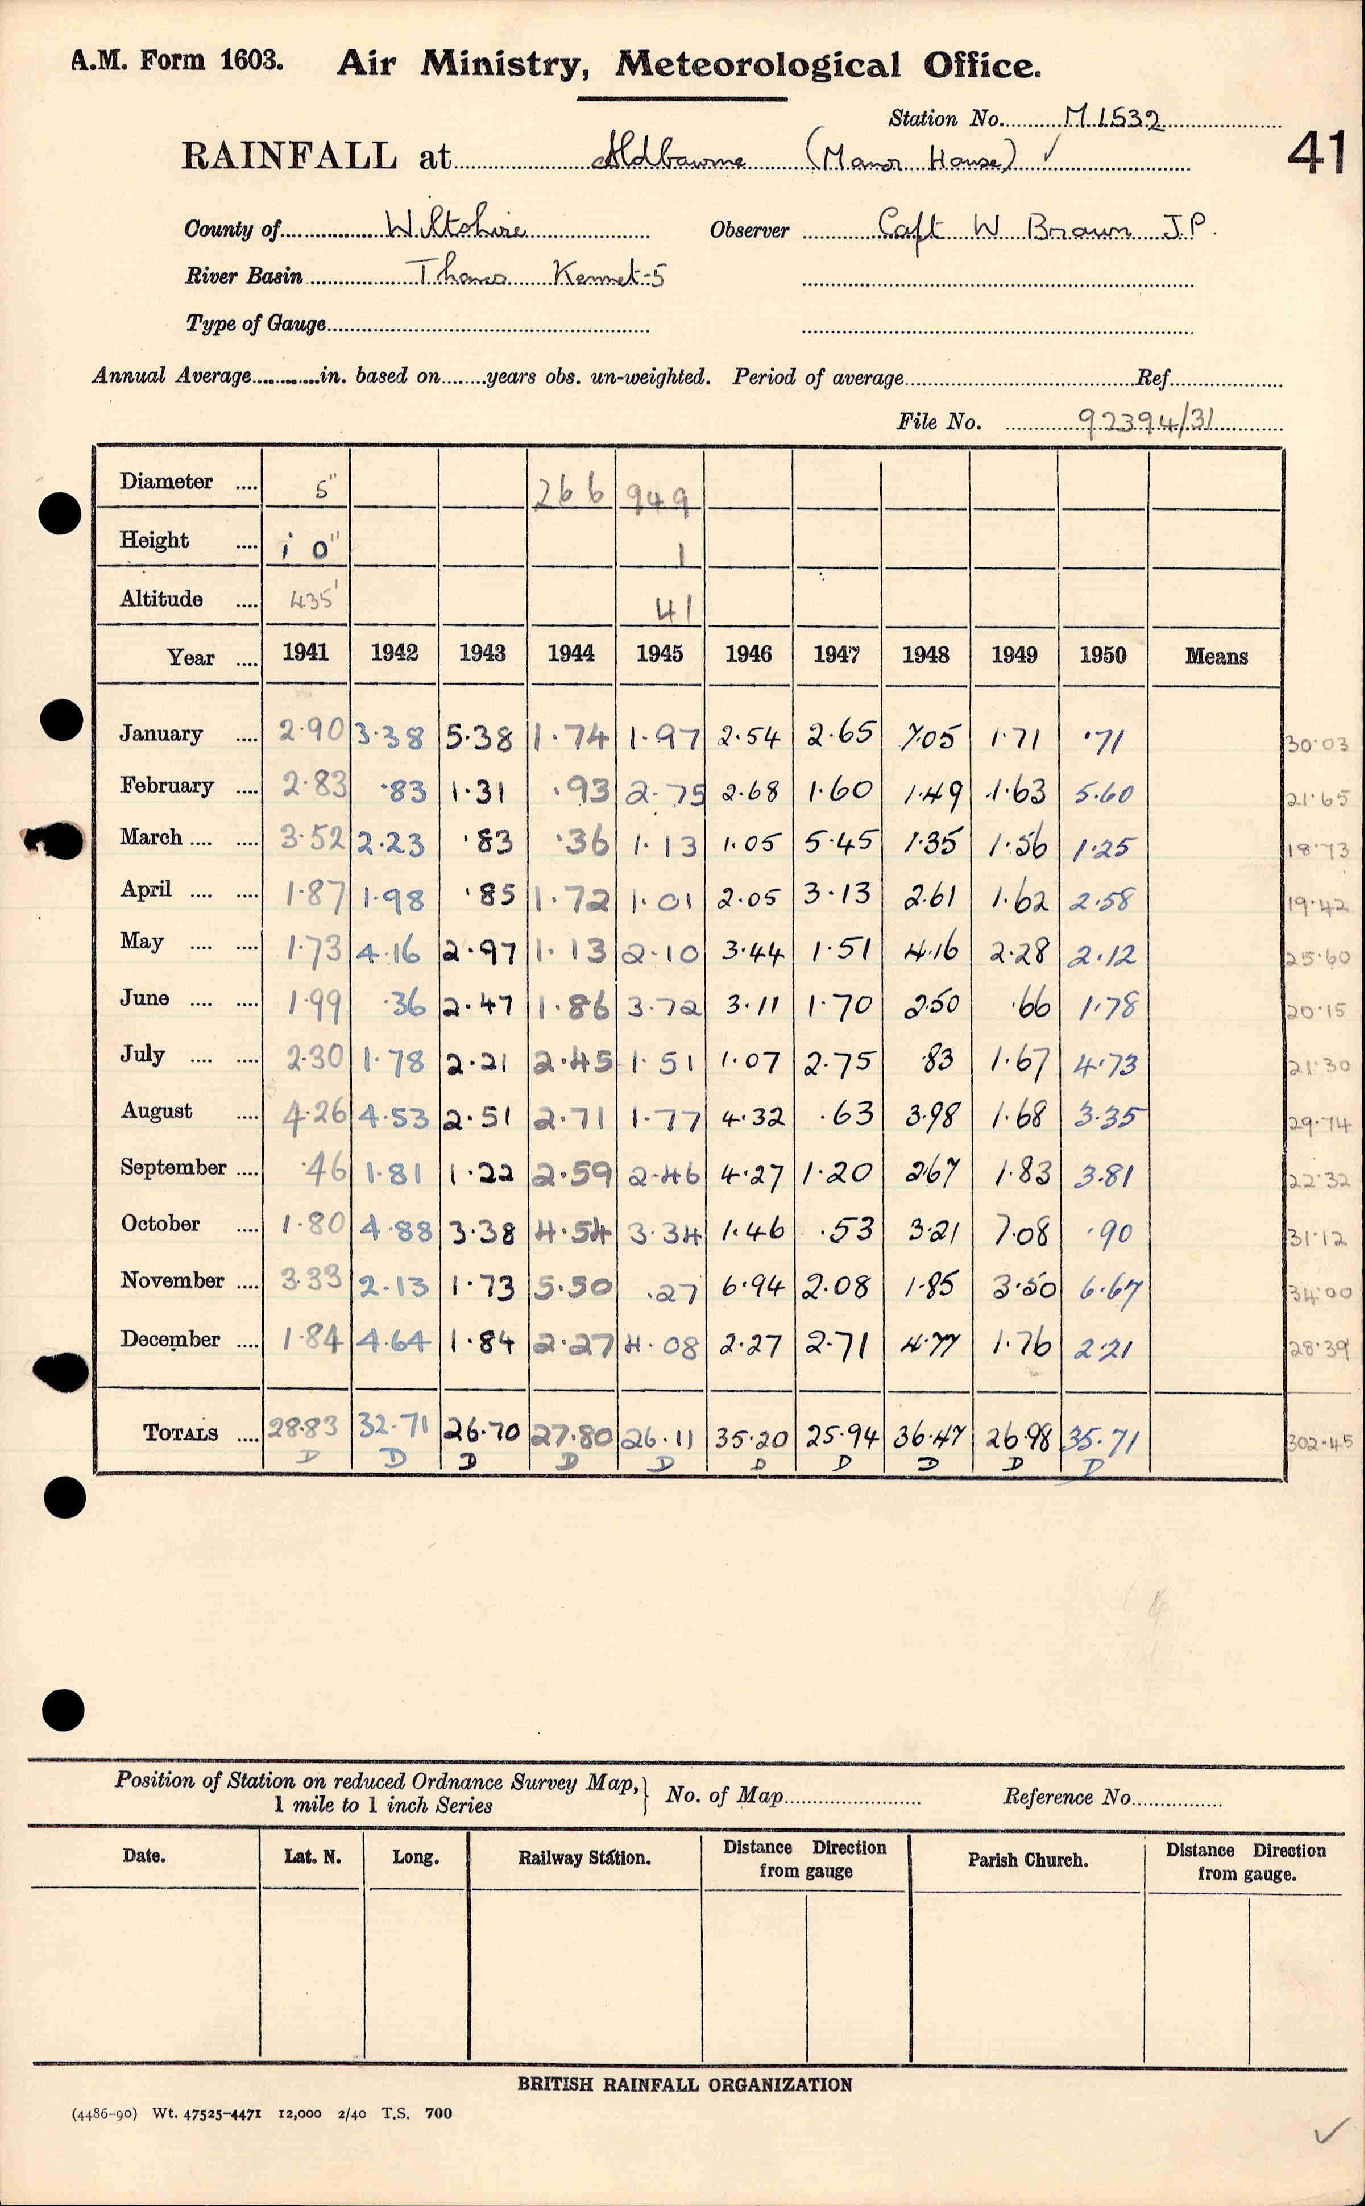 A.M. Form 1603. Air Ministry, Meteorological Office.
Station No. M1532
41
RAINFALL at Aldbourne (Manor House) ✓
County of Wiltshire Observer Capt W Brown J.P.
River Basin Thames Kennet-5
Type of Gauge
Annual Average in. based on years obs. un-weighted. Period of average Ref.
File No. 92394/31
Diameter 5" 266 949
Height 1 0" 1
Altitude 435' 41
Year 1941 1942 1943 1944 1945 1946 1947 1948 1949 1950 Means
January 2.90 3.38 5.38 1.74 1.97 2.54 2.65 7.05 1.71 .71 30.03
February 2.83 .83 1.31 .93 2.75 2.68 1.60 1.49 1.63 5.60 21.65
March 3.52 2.23 .83 .36 1.13 1.05 5.45 1.35 1.56 1.25 18.73
April 1.87 1.98 .85 1.72 1.01 2.05 3.13 2.61 1.62 2.58 19.42
May 1.73 4.16 2.97 1.13 2.10 3.44 1.51 4.16 2.28 2.12 25.60
June 1.99 .36 2.47 1.86 3.72 3.11 1.70 2.50 .66 1.78 20.15
July 2.30 1.78 2.21 2.45 1.51 1.07 2.75 .83 1.67 4.73 21.30
August 4.26 4.53 2.51 2.71 1.77 4.32 .63 3.98 1.68 3.35 29.74
September .46 1.81 1.22 2.59 2.46 4.27 1.20 2.67 1.83 3.81 22.32
October 1.80 4.88 3.38 4.54 3.34 1.46 .53 3.21 7.08 .90 31.12
November 3.33 2.13 1.73 5.50 .27 6.94 2.08 1.85 3.50 6.67 34.00
December 1.84 4.64 1.84 2.27 4.08 2.27 2.71 4.77 1.76 2.21 28.39
TOTALS 28.83 32.71 26.70 27.80 26.11 35.20 25.94 36.47 26.98 35.71 302.45
D D D D D D D D D D
Position of Station on reduced Ordnance Survey Map, 1 mile to 1 inch Series } No. of Map Reference No.
Date. Lat. N. Long. Railway Station. Distance Direction from gauge Parish Church. Distance Direction from gauge.
BRITISH RAINFALL ORGANIZATION
(4486-90) Wt. 47525-4471 12,000 2/40 T.S. 700
✓